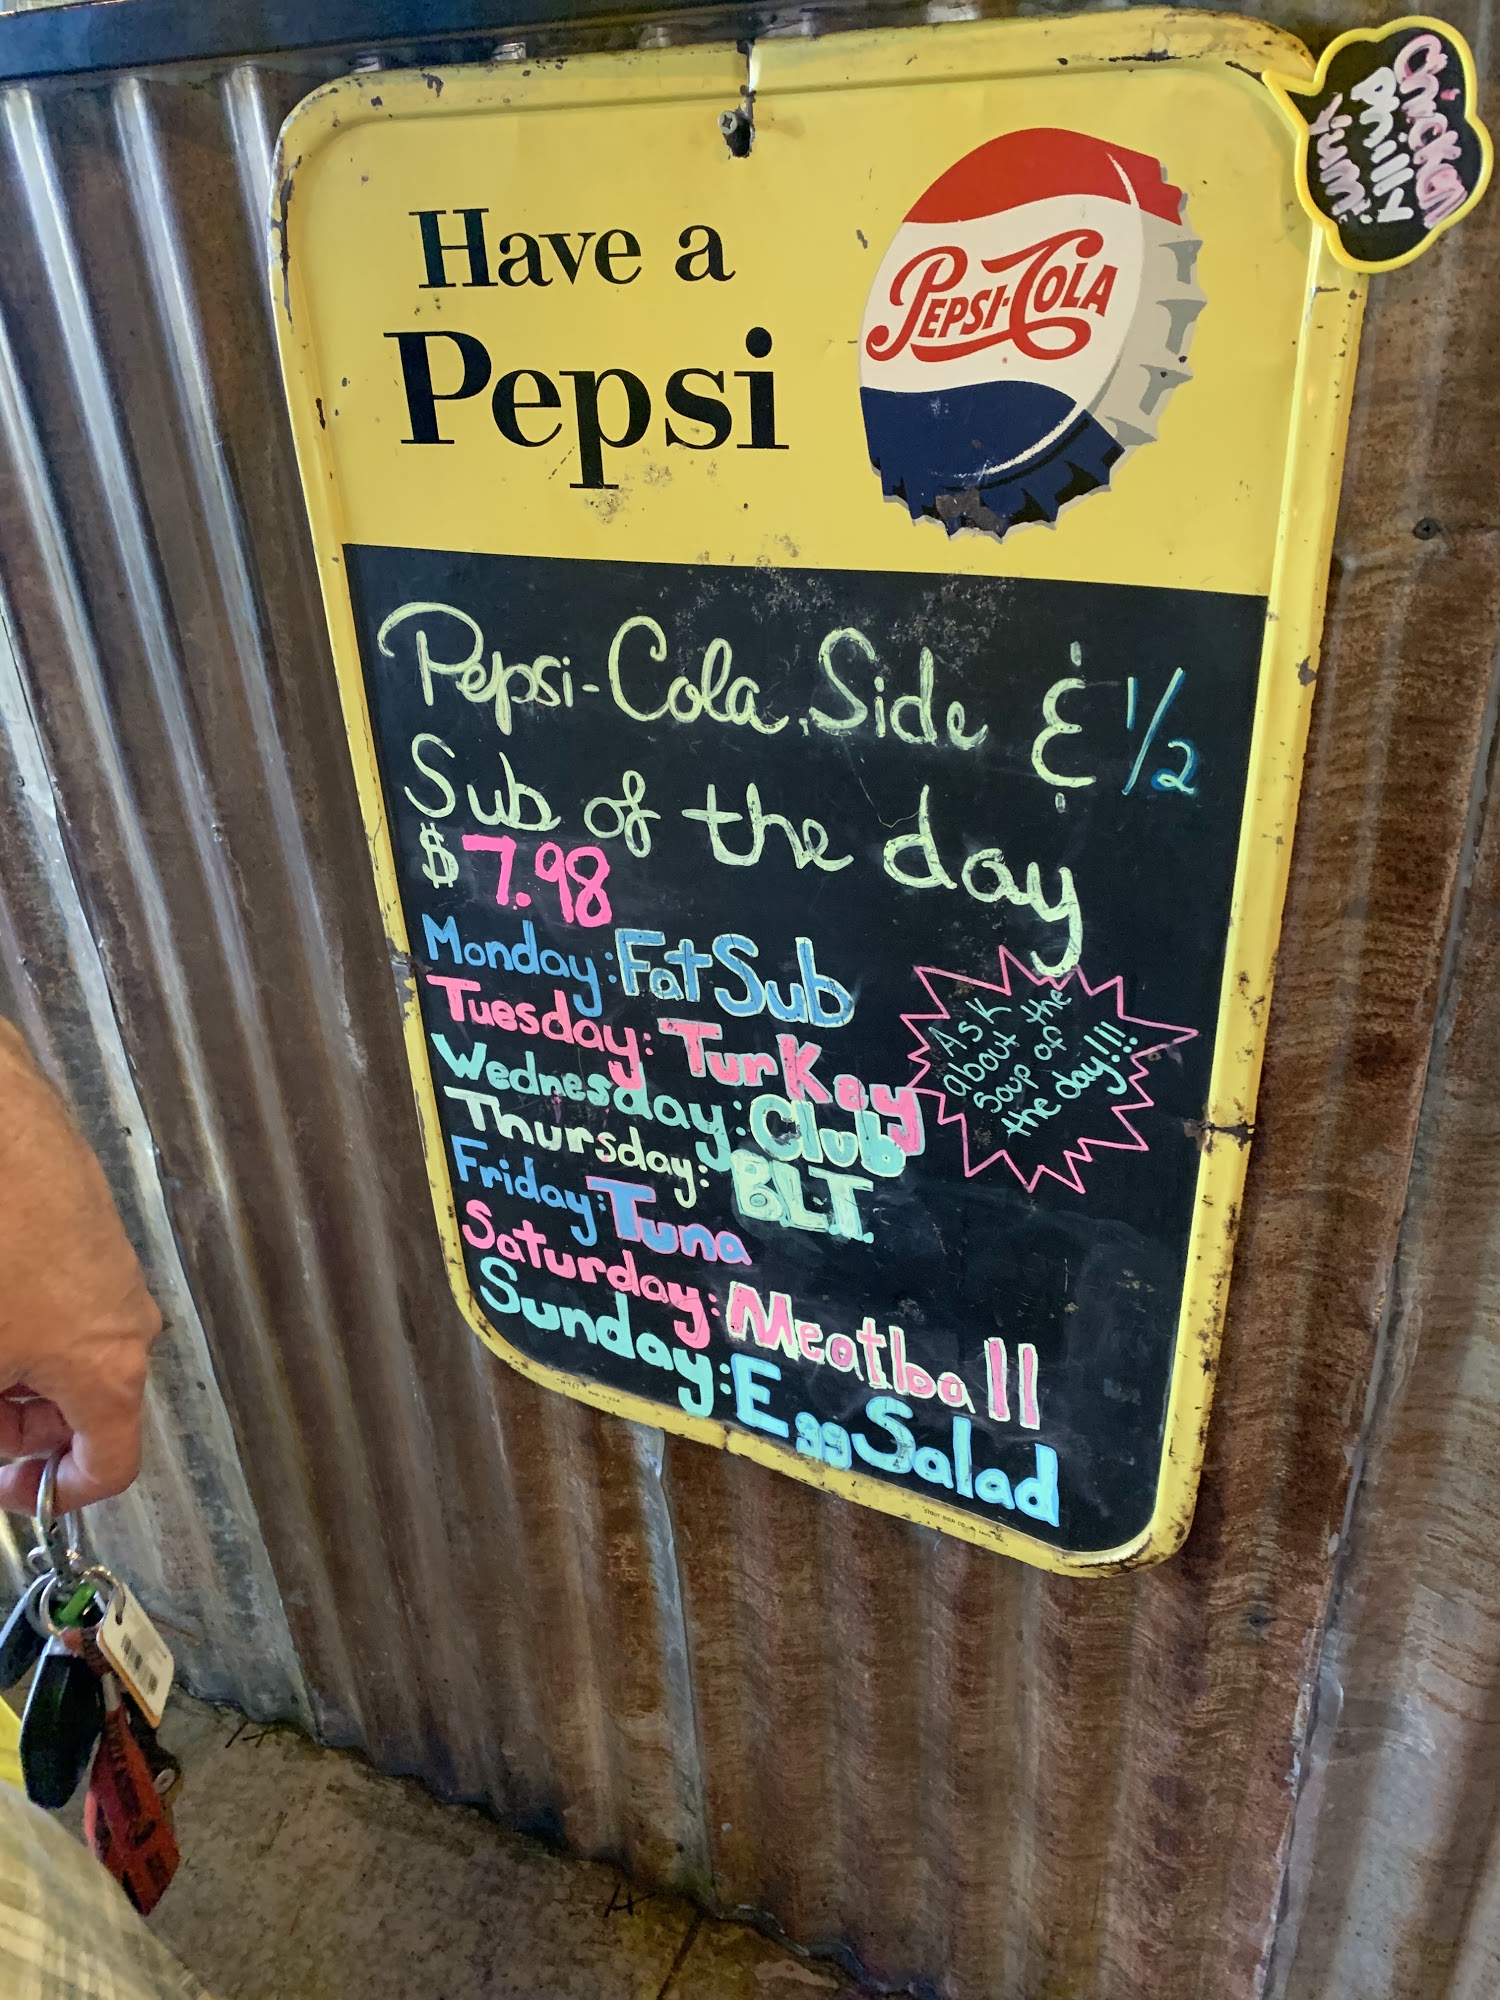 Have a
Pepsi
PEPSI-COLA
Chicken
Philly
Pepsi-Cola, Side & 1/2
Sub of the day
$7.98
Monday: Fat Sub
Tuesday: Turkey
Wednesday: Club
Thursday: BLT.
Friday: Tuna
Saturday: Meatball
Sunday: Egg Salad
Ask
about the
Soup of
the day!!!